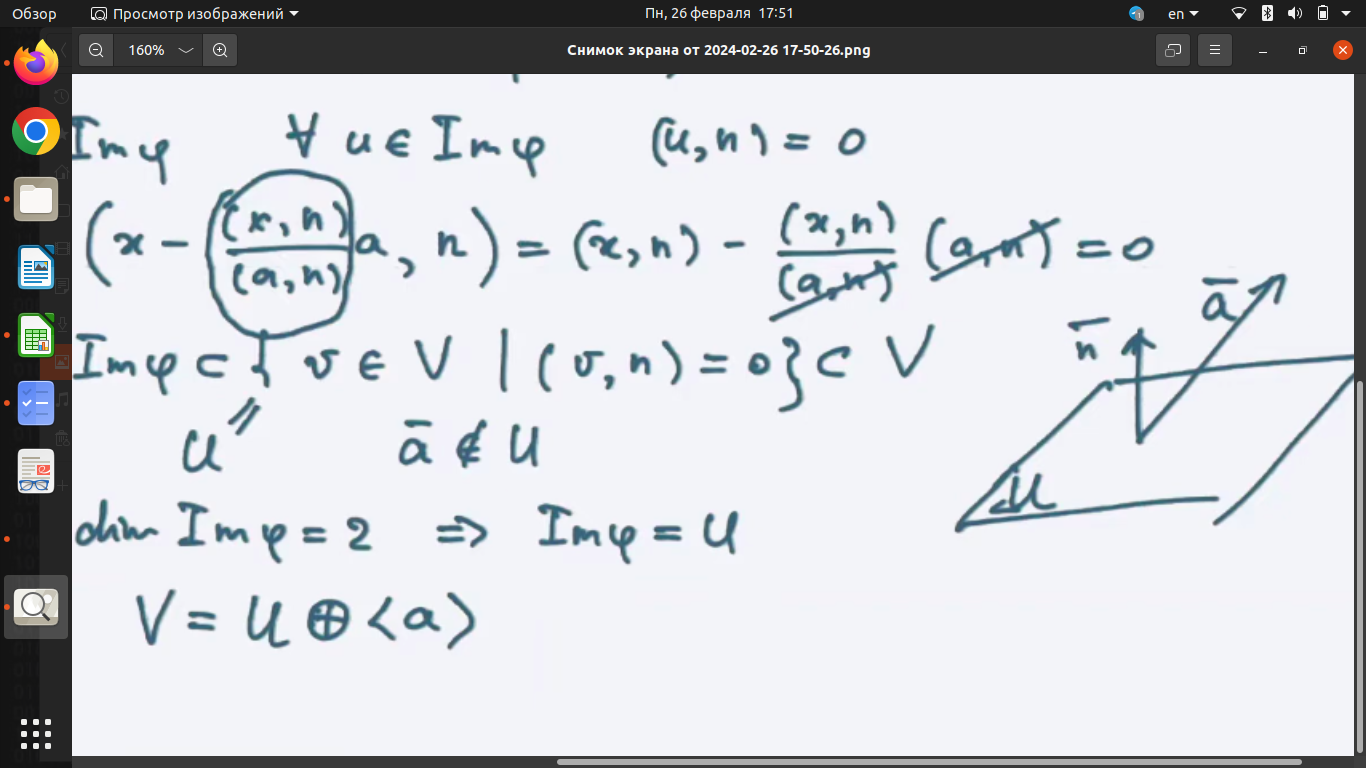 Обзор Просмотр изображений Пн, 26 февраля 17:51 en
160% Снимок экрана от 2024-02-26 17-50-26.png
Imφ ∀ u ∈ Imφ (u, n) = 0
(x − (x, n)/(a, n) a, n) = (x, n) − (x, n)/(a, n) (a, n) = 0
Imφ ⊂ { v ∈ V | (v, n) = 0} ⊂ V
U ā ∉ U
dim Imφ = 2 => Imφ = U
V = U ⊕ <a>
n̄ ā
U